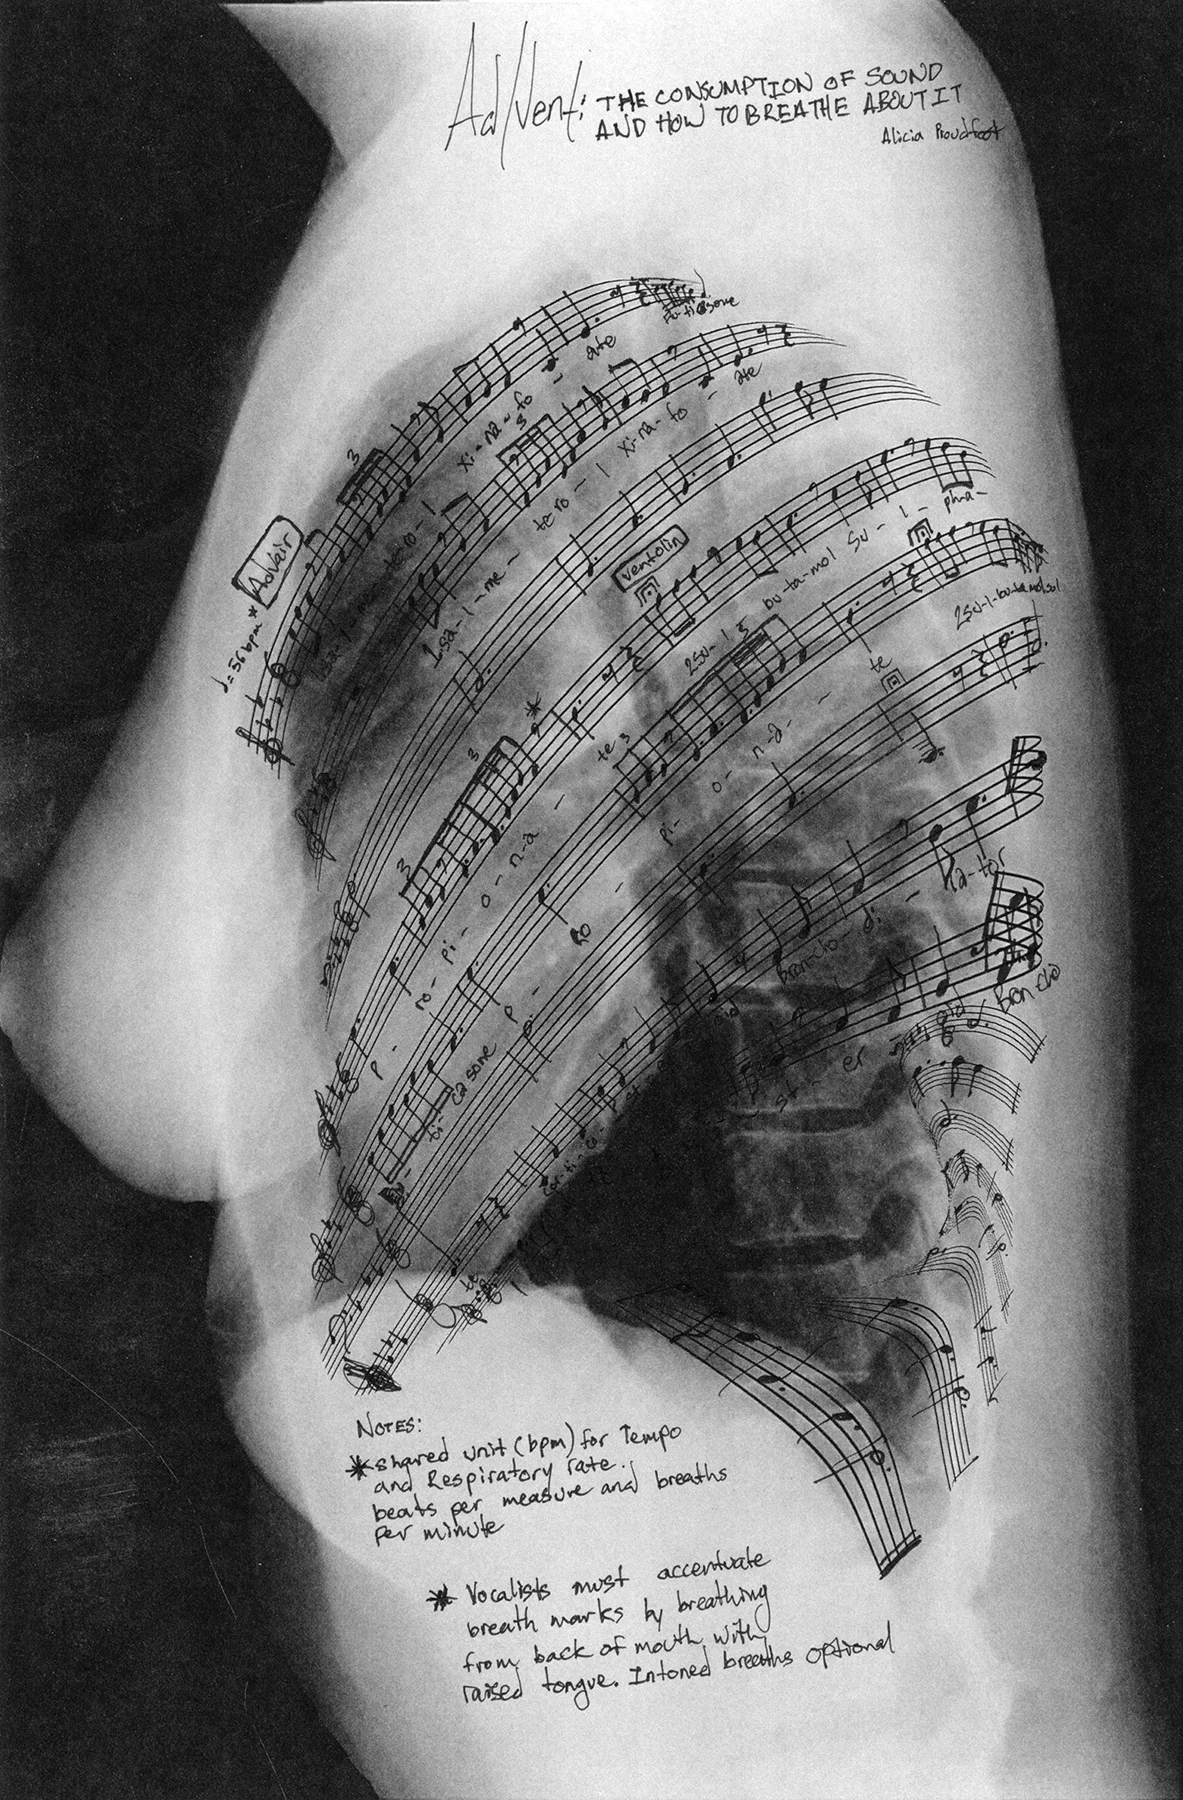 Ad/Vent: THE CONSUMPTION OF SOUND
AND HOW TO BREATHE ABOUT IT
Alicia Proudfoot
♩=56bpm *
Advair
3
ti-ca-sone
1sa-l-me-tero-l
xi-na-fo - ate
3
2-sa-l-me-tero-l
xi-na-fo - ate
ventolin
3
ro-pi-o-n-a - te
2su-l
bu-ta-mol su-l-pha-
te
3
3
2su-l-bu-ta-mol sul
p - ro - pi-o-n-a-
ti ca sone
te
cor-ti-co-
oid
bron-cho-di-la-tor
st-er
oid
Bron-cho
NOTES:
* shared unit (bpm) for Tempo
and Respiratory rate.
beats per measure and breaths
per minute
* Vocalists must accentuate
breath marks by breathing
from back of mouth with
raised tongue. Intoned breaths optional